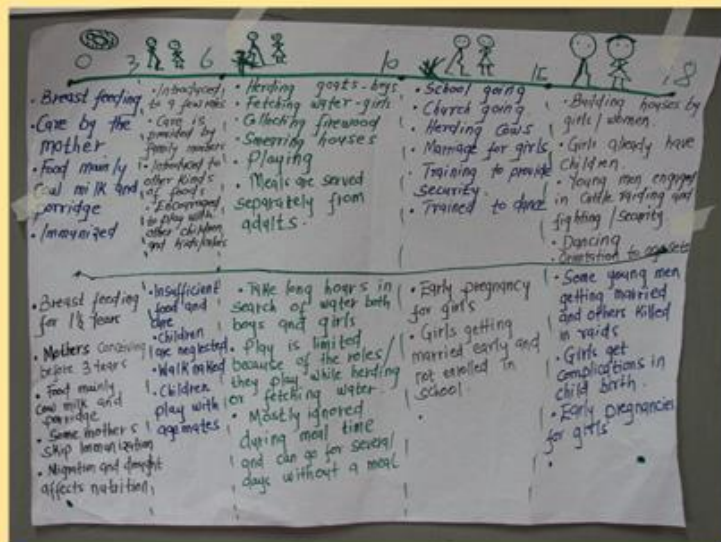 0 3 6 10 15 18
• Breast feeding
• Care by the
mother
• Food mainly
cow milk and
porridge
• Immunized
• Introduced
to a few roles
• Care is
provided by
family members
• Introduced to
other kinds
of foods
• Encouraged
to play with
other children
and kids/calves
• Herding goats - boys
• Fetching water - girls
• Collecting firewood
• Smearing houses
• Playing
• Meals are served
separately from
adults.
• School going
• Church going
• Herding cows
• Marriage for girls
• Training to provide
security.
• Trained to dance
• Building houses by
girls / women.
• Girls already have
children.
• Young men engaged
in cattle raiding and
fighting / security
• Dancing
• Orientation to
• Breast feeding
for 1½ years
• Mothers conceiving
before 3 years
• Food mainly
cow milk and
porridge
• Some mothers
skip immunization
• Migration and drought
affects nutrition
• Insufficient
food and
care
• Children
are neglected
• Walk naked
• Children
play with
agemates
• Take long hours in
search of water both
boys and girls
• Play is limited
because of the roles/
they play while herding
or fetching water.
• Mostly ignored
during meal time
and can go for several
days without a meal
• Early pregnancy
for girls
• Girls getting
married early and
not enrolled in
school
• Some young men
getting married
and others killed
in raids
• Girls get
complications in
child birth.
• Early pregnancies
for girls